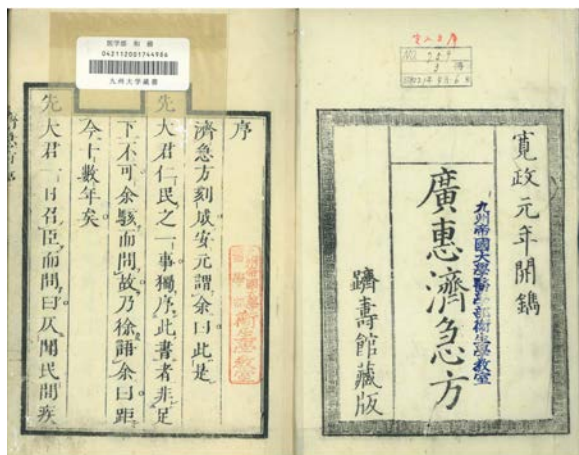 寛政元年開鐫
廣惠濟急方
九州帝國大學醫學部衛生學教室
躋壽館藏版
医学部
042112001744986
九州大学蔵書
序
濟急方刻成安元謂余曰此是
先大君仁民之一事獨序此書者非足
下不可余駭而問故乃徐語余曰距
今十數年矣
先大君一日召臣而問曰仄聞民間疾